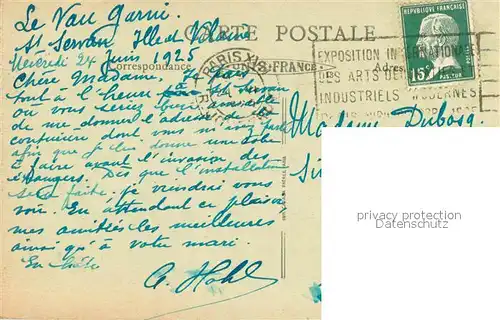 Le Vau Garni
CARTE POSTALE
St Servan Ille et Vilaine
Mercredi 24 Juin 1925
Correspondance
PARIS
FRANCE
Adres
REPUBLIQUE FRANÇAISE
15c
PASTEUR
EXPOSITION INTERNATIONALE
DES ARTS DE
INDUSTRIELS MODERNES
Chère Madame. Je pars
tout à l'heure à St Servan
ou vous seriez bien aimable
de me donner l'adresse de la
couturière dont vous m'avez parlé
afin que je lui donne une robe
à faire avant l'invasion des
étrangers. Dès que l'installation
sera faite, je viendrai vous
voir. En attendant ce plaisir,
mes amitiés les meilleures
ainsi qu'à votre mari.
En hâte
G. Hohl
Madame Dubosq
privacy protection
Datenschutz